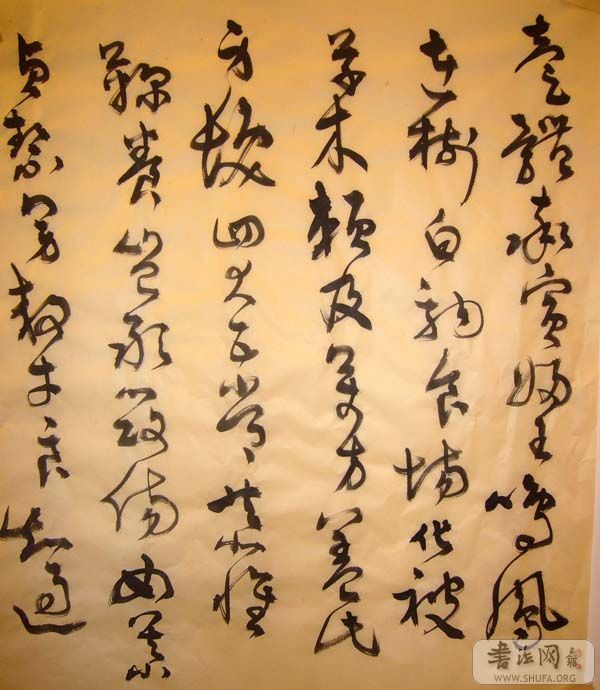 壹體率賓歸王鳴鳳
在樹白駒食場化被
草木賴及萬方蓋此
身髮四大五常恭惟
鞠養豈敢毀傷女慕
貞絜男效才良知過
書法网
WWW.SHUFA.ORG